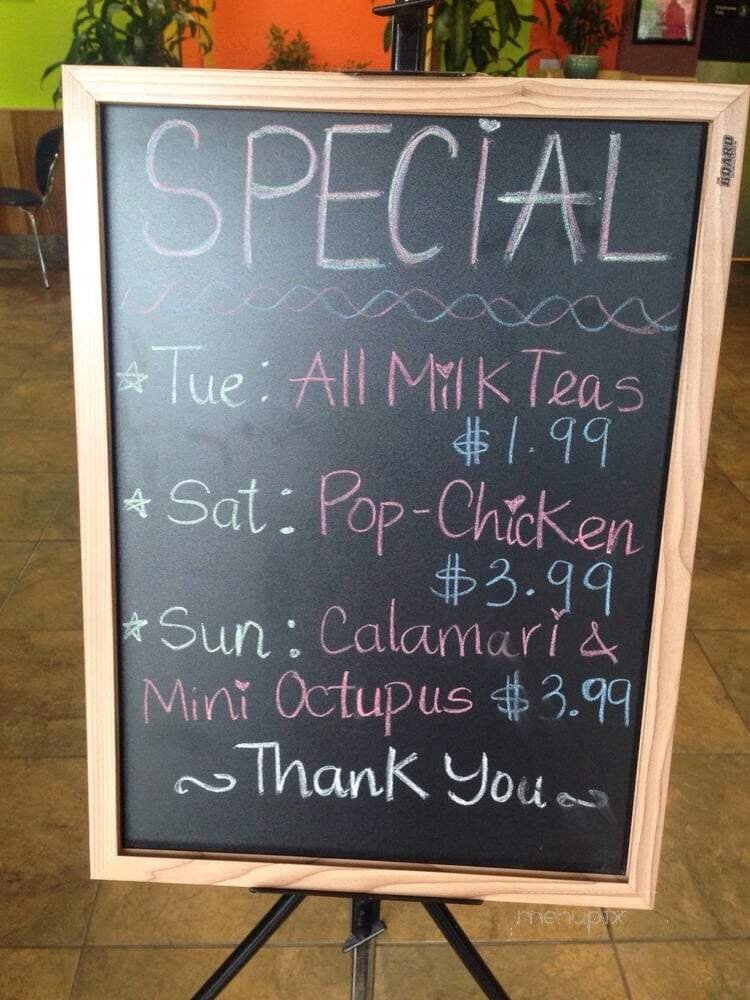 SPECIAL
Tue: All Milk Teas
$1.99
Sat: Pop-Chicken
$3.99
Sun: Calamari &
Mini Octupus $3.99
~Thank You~
BOARD
menupix